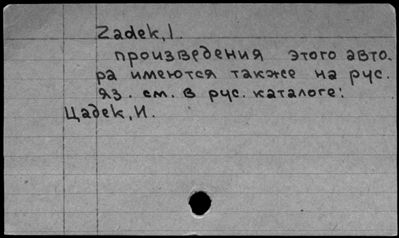 Zadek, I.
произведения этого авто-
ра имеются также на рус.
яз. см. в рус. каталоге:
Цадек, И.